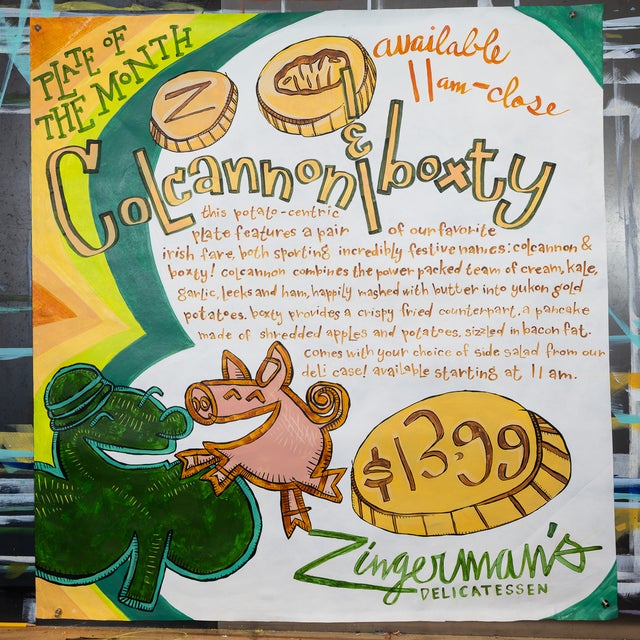 PLATE OF
THE MONTH
available
11am-close
Z
Colcannon & boxty
this potato-centric
plate features a pair of our favorite
irish fare, both sporting incredibly festive names: colcannon &
boxty! colcannon combines the power packed team of cream, kale,
garlic, leeks and ham, happily mashed with butter into yukon gold
potatoes. boxty provides a crispy fried counterpart, a pancake
made of shredded apples and potatoes, sizzled in bacon fat.
comes with your choice of side salad from our
deli case! available starting at 11 am.
$13.99
Zingerman's
DELICATESSEN